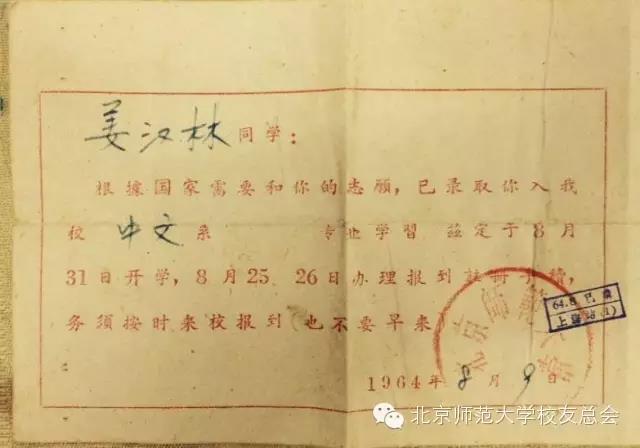 姜汉林同学：
根據国家需要和你的志願，已录取你入我
校 中文系 专业学習 兹定于8月
31日开学，8月25、26日办理报到註册手續，
务須按时来校报到 也不要早来
1964年8月9日
北京师范大学
64.8 已廣
上海站(1)
北京师范大学校友总会